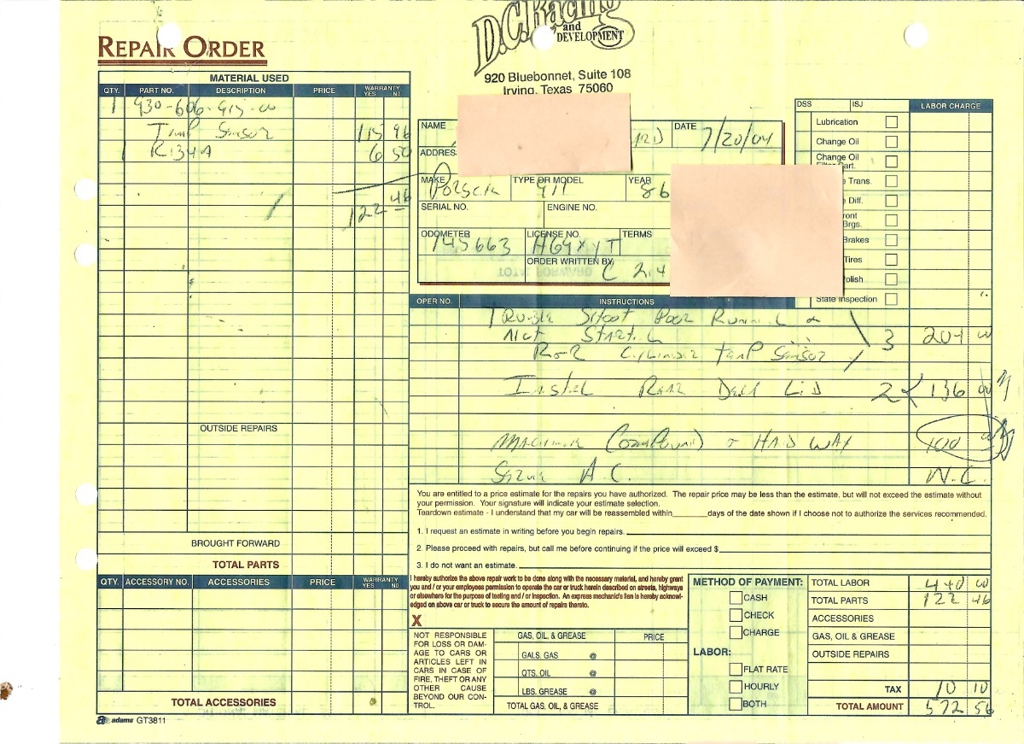 REPAIR ORDER
D.C. Racing
and
DEVELOPMENT
920 Bluebonnet, Suite 108
Irving, Texas 75060
MATERIAL USED
QTY. PART NO. DESCRIPTION PRICE WARRANTY YES NO
1 930-606-415-00
Temp Sensor 115 96
R134A 6 50
122 46
OUTSIDE REPAIRS
BROUGHT FORWARD
TOTAL PARTS
QTY. ACCESSORY NO. ACCESSORIES PRICE WARRANTY YES NO
TOTAL ACCESSORIES
adams GT3811
NAME DATE 7/20/04
ADDRES
MAKE Porsch TYPE OR MODEL 911 YEAR 86
SERIAL NO. ENGINE NO.
ODOMETER 145663 LICENSE NO. TERMS
ORDER WRITTEN BY
TOTAL FORWARD
DSS ISJ LABOR CHARGE
Lubrication
Change Oil
Change Oil
Trans.
Diff.
Brgs.
Brakes
Tires
olish
State Inspection
OPER NO. INSTRUCTIONS
Trouble Shoot Poor Running &
Not Starting 3 204 00
R&R Cylinder Temp Sensor
Install Rear Deck Lid 2 136 00
(Compound) & Hand Wax 100 00
A.C. N.C.
You are entitled to a price estimate for the repairs you have authorized. The repair price may be less than the estimate, but will not exceed the estimate without
your permission. Your signature will indicate your estimate selection.
Teardown estimate - I understand that my car will be reassembled within ______ days of the date shown if I choose not to authorize the services recommended.
1. I request an estimate in writing before you begin repairs.
2. Please proceed with repairs, but call me before continuing if the price will exceed $
3. I do not want an estimate.
I hereby authorize the above repair work to be done along with the necessary material, and hereby grant
you and / or your employees permission to operate the car or truck herein described on streets, highways
or elsewhere for the purpose of testing and / or inspection. An express mechanic's lien is hereby acknowl-
edged on above car or truck to secure the amount of repairs thereto.
X
NOT RESPONSIBLE
FOR LOSS OR DAM-
AGE TO CARS OR
ARTICLES LEFT IN
CARS IN CASE OF
FIRE, THEFT OR ANY
OTHER CAUSE
BEYOND OUR CON-
TROL.
GAS, OIL, & GREASE PRICE
GALS. GAS @
QTS. OIL @
LBS. GREASE @
TOTAL GAS, OIL, & GREASE
METHOD OF PAYMENT:
CASH
CHECK
CHARGE
LABOR:
FLAT RATE
HOURLY
BOTH
TOTAL LABOR 440 00
TOTAL PARTS 122 46
ACCESSORIES
GAS, OIL & GREASE
OUTSIDE REPAIRS
TAX 10 10
TOTAL AMOUNT 572 56